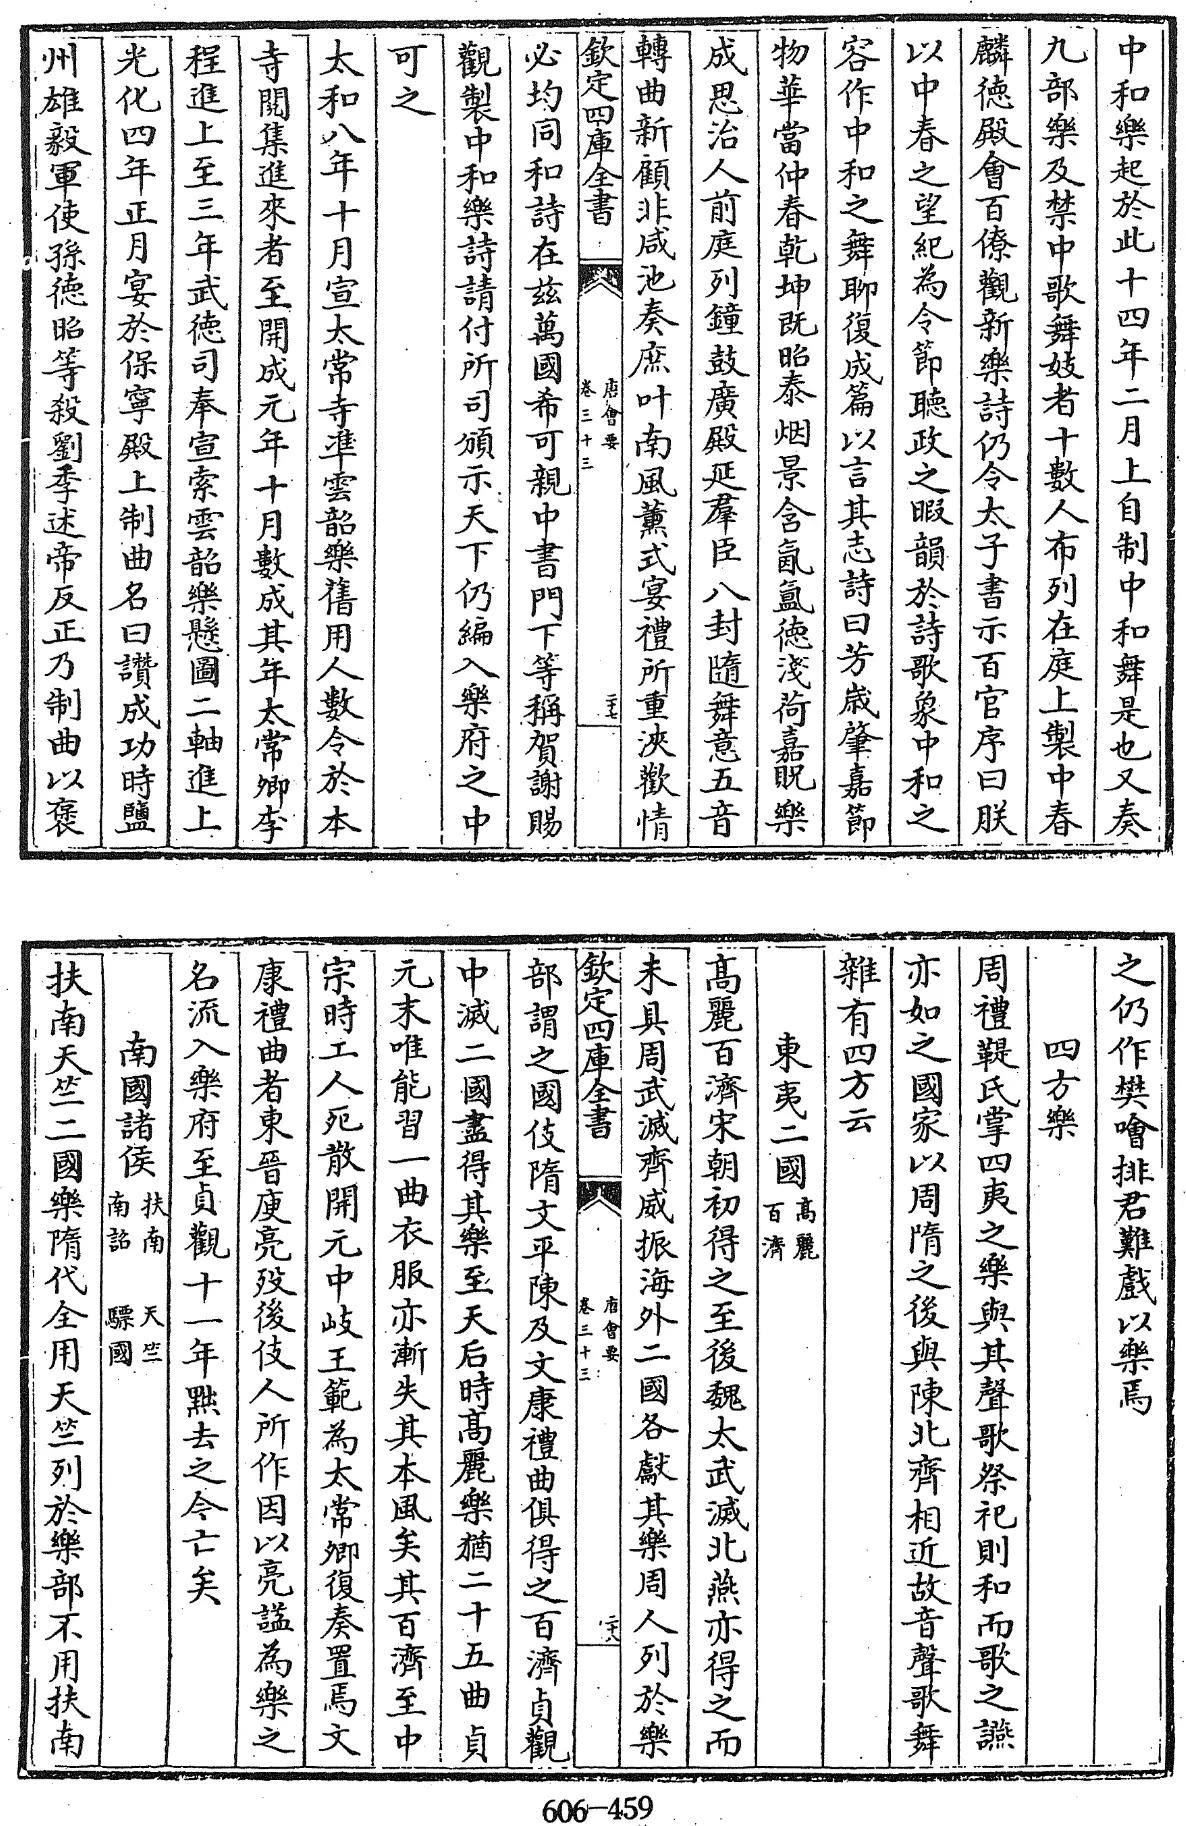 中和樂起於此十四年二月上自制中和舞是也又奏
九部樂及禁中歌舞妓者十數人布列在庭上製中春
麟德殿會百僚觀新樂詩仍令太子書示百官序曰朕
以中春之望紀為令節聽政之暇韻於詩歌象中和之
容作中和之舞聊復成篇以言其志詩曰芳歲肇嘉節
物華當仲春乾坤既昭泰烟景含氤氳德淺荷嘉貺樂
成思治人前庭列鐘鼓廣殿延羣臣八封隨舞意五音
轉曲新顧非咸池奏庶叶南風薰式宴禮所重浹歡情
欽定四庫全書
唐會要
卷三十三
二十七
必均同和詩在兹萬國希可親中書門下等稱賀謝賜
觀製中和樂詩請付所司頒示天下仍編入樂府之中
可之
太和八年十月宣太常寺準雲韶樂舊用人數令於本
寺閱集進來者至開成元年十月數成其年太常卿李
程進上至三年武德司奉宣索雲韶樂懸圖二軸進上
光化四年正月宴於保寧殿上制曲名曰讚成功時鹽
州雄毅軍使孫德昭等殺劉季述帝反正乃制曲以褒
之仍作樊噲排君難戲以樂焉
四方樂
周禮鞮氏掌四夷之樂與其聲歌祭祀則和而歌之讌
亦如之國家以周隋之後與陳北齊相近故音聲歌舞
雜有四方云
東夷二國 高麗 百濟
高麗百濟宋朝初得之至後魏太武滅北燕亦得之而
未具周武滅齊威振海外二國各獻其樂周人列於樂
欽定四庫全書
唐會要
卷三十三
二十八
部謂之國伎隋文平陳及文康禮曲俱得之百濟貞觀
中滅二國盡得其樂至天后時高麗樂猶二十五曲貞
元末唯能習一曲衣服亦漸失其本風矣其百濟至中
宗時工人死散開元中岐王範為太常卿復奏置焉文
康禮曲者東晉庾亮歿後伎人所作因以亮謚為樂之
名流入樂府至貞觀十一年黜去之今亡矣
南國諸侯 扶南 天竺 南詔 驃國
扶南天竺二國樂隋代全用天竺列於樂部不用扶南
606-459